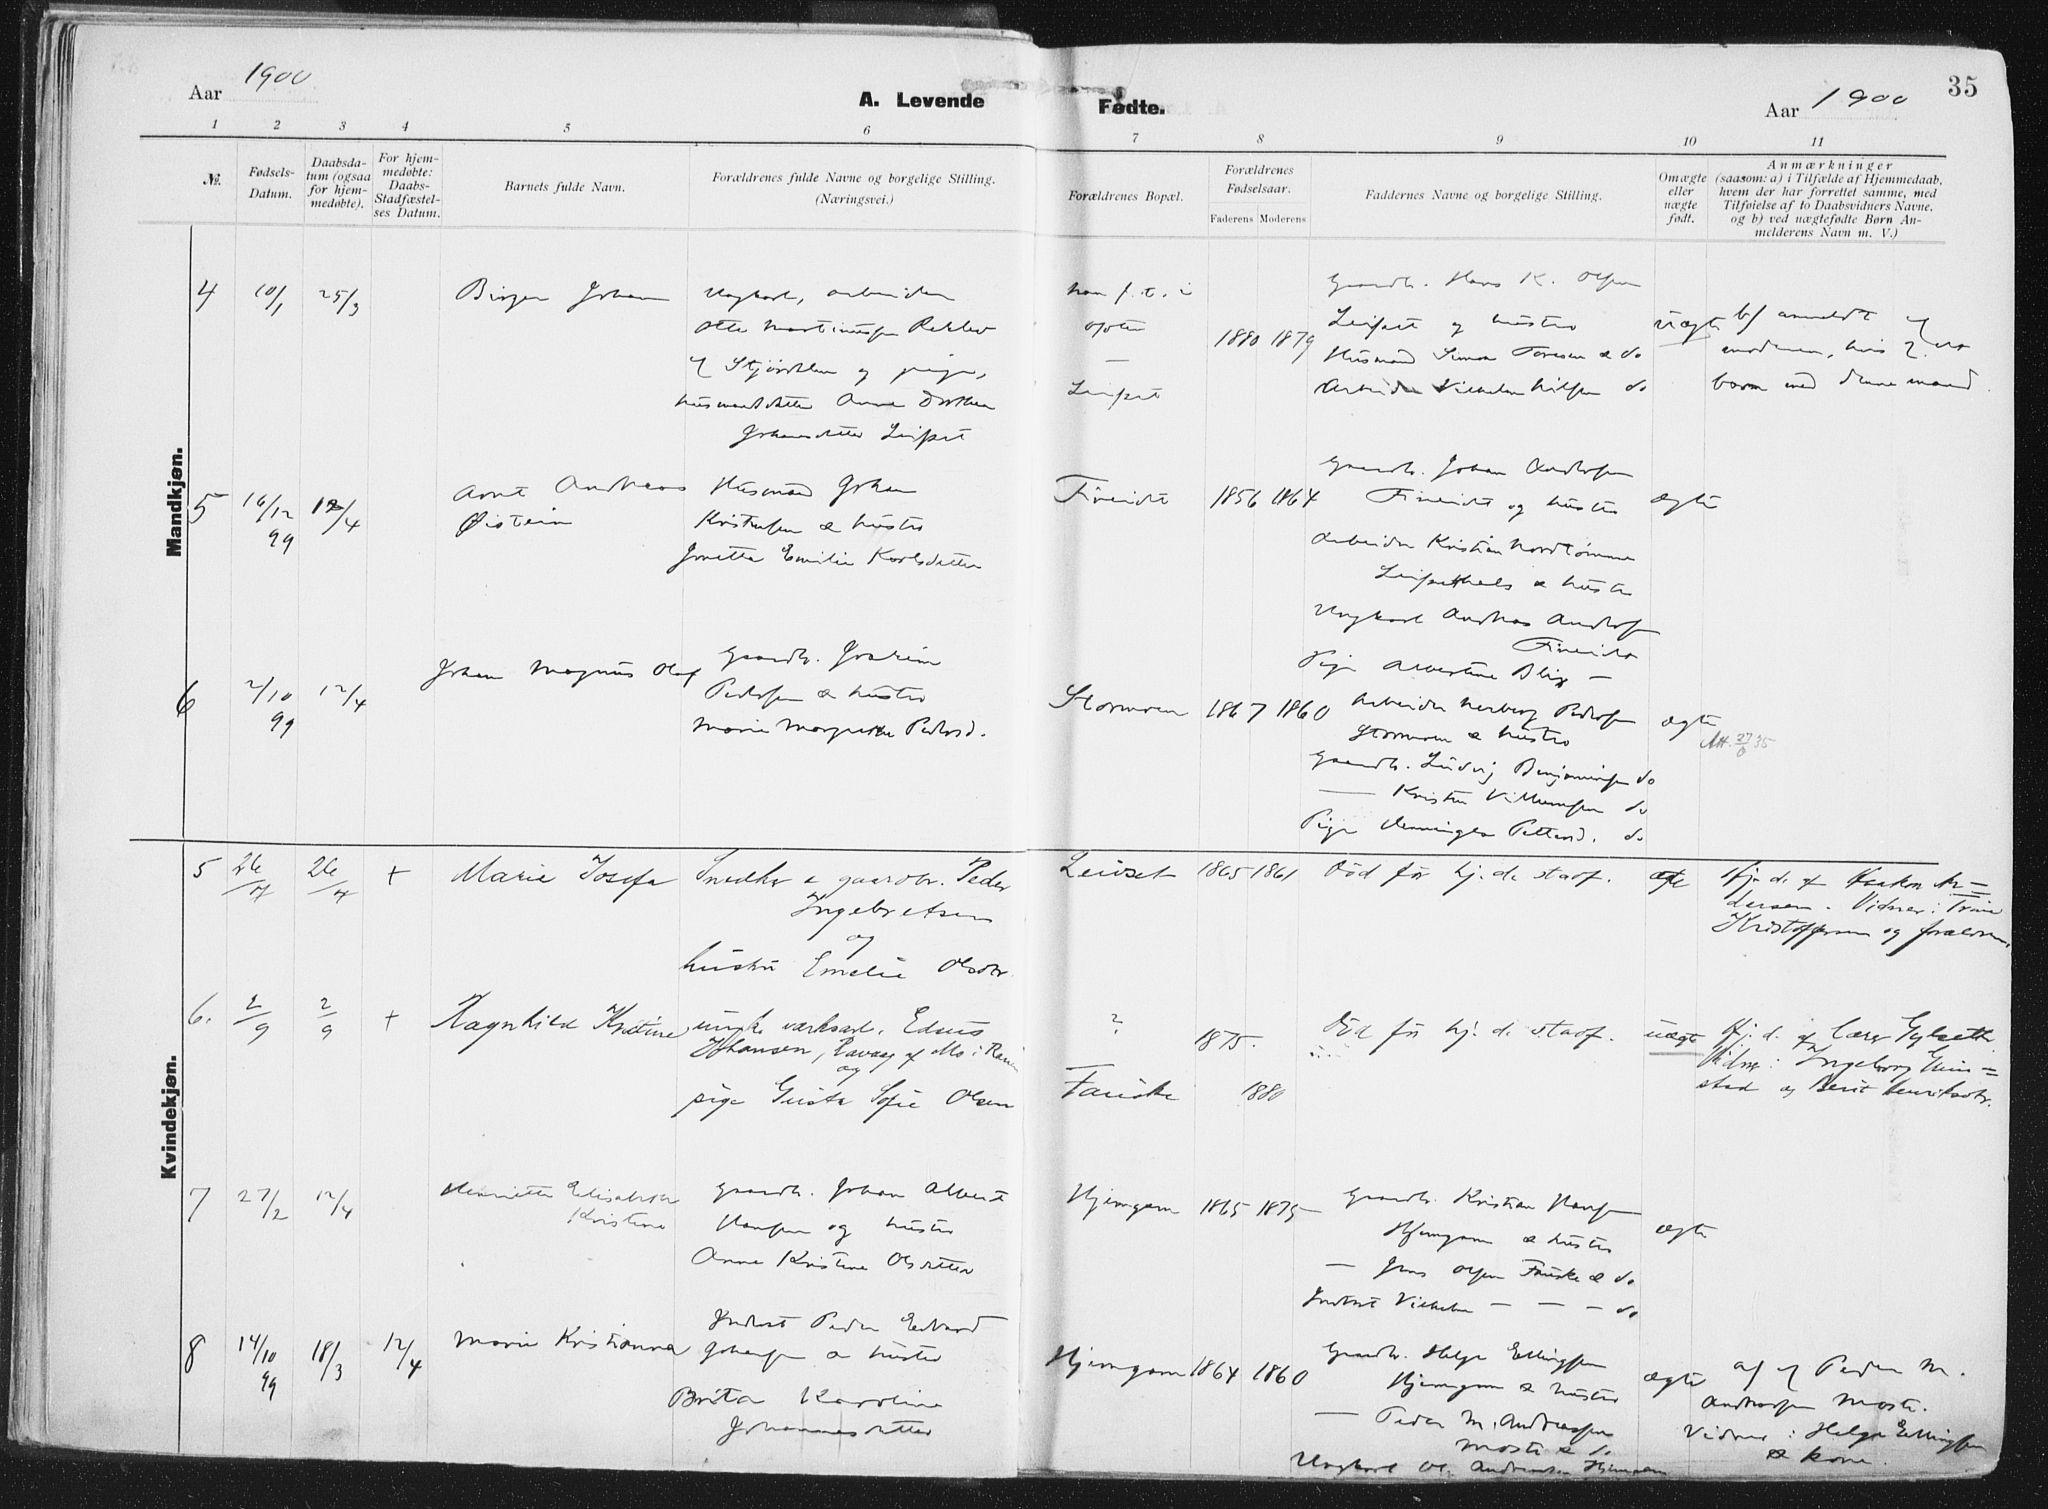 Aar 1900
A. Levende Fødte.
Aar 1900
35
1 2 3 4 5 6 7 8 9 10 11
No.
Fødsels-
Datum.
Daabsda-
tum (ogsaa
for hjem-
medøbte).
For hjem-
medøbte:
Daabs-
Stadfæstel-
ses Datum.
Barnets fulde Navn.
Forældrenes fulde Navne og borgelige Stilling.
(Næringsvei.)
Forældrenes Bopæl.
Forældrenes
Fødselsaar.
Faderens Moderens
Faddernes Navne og borgelige Stilling.
Omægte
eller
uægte
født.
Anmærkninger
(saasom: a) i Tilfælde af Hjemmedaab,
hvem der har forrettet samme, med
Tilføielse af to Daabsvidners Navne.
og b) ved uægtefødte Børn An-
melderens Navn m. V.)
Mandkjøn.
4 10/1 25/3
Birger Johan
Ungkarl, arbeider
Otto Martinussen
Stjørdalen og pige,
Anne Dorthea
Leifset
1880 1879
Gaardb. Hans K. Olsen
Leifset og hustru
Husmand Simon & do
Arbeider Vilhelm do
uægte
b/ anmeldt af
moderen,
barn med denne mand
5 16/12 99 12/4
Arnt Andreas
Øistein
Husmand Johan
Kristensen & hustru
Jonetta Emilie Karlsdatter
Fineidet
1856 1864
Gaardb. Johan Andersen
Fineidet og hustru
Arbeider Kristian Nordtømme
& hustru
Ungkarl Andreas Andersen
Fineidet
Pige Albertine Blix —
ægte
6 2/10 99 12/4
Johan Magnus Olaf
Gaardb. Joakim
Pedersen & hustru
Marie Margrete Pedersd.
Stormoen
1867 1860
Arbeider Pedersen
Stormoen & hustru
Gaardb. Ludvig Benjaminsen do
— Kristen Villumsen do
Pige Henningea Pettersd. do
ægte
Att. 35
Kvindekjøn.
5 26/7 26/7 +
Marie Josefa
Snedker & gaardbr. Peder
Ingebretsen
og
hustru Emelie Olsdtr.
Leivset
1865 1861
Død før hj. d. stadf.
ægte
Hj. d. af Haakon An=
dersen. Vidner: Trine
Kristoffersen og forældrene.
6. 2/9 2/9 +
Ragnhild Kristine
ungk.
Johansen, af Mo i Ranen
og
pige Gusta Sofie Olsen
?
1875.
Fauske
1880
Død før hj. d. stadf.
uægte
Hj. d. af
Vidner: Ingeborg
stad og Berit Henriksdtr.
7 27/2 12/4
Henriette Elisabeth
Kristine
Gaardb. Johan Albert
Hansen og hustru
Anne Kristine Olsdatter
Hjemgam
1865 1875
Gaardb. Kristian Hansen
Hjemgam & hustru
— Jens Olsen Fauske & do
Inderst Vilhelm — — — do
ægte
8 14/10 99 18/3 12/4
Marie Kristianna
Inderst Peder Edvard
Johansen & hustru
Brita Karoline
Johannesdatter
Hjemgam
1864 1860
Gaardb. Helge Ellingsen
Hjemgam & hustru
— Peder M. Andreassen
Moste & do
Ungkarl Ol. Andreassen Hjemgam
ægte
af Peder M.
Andreassen Moste.
Vidner: Helge Ellingsen
& kone.